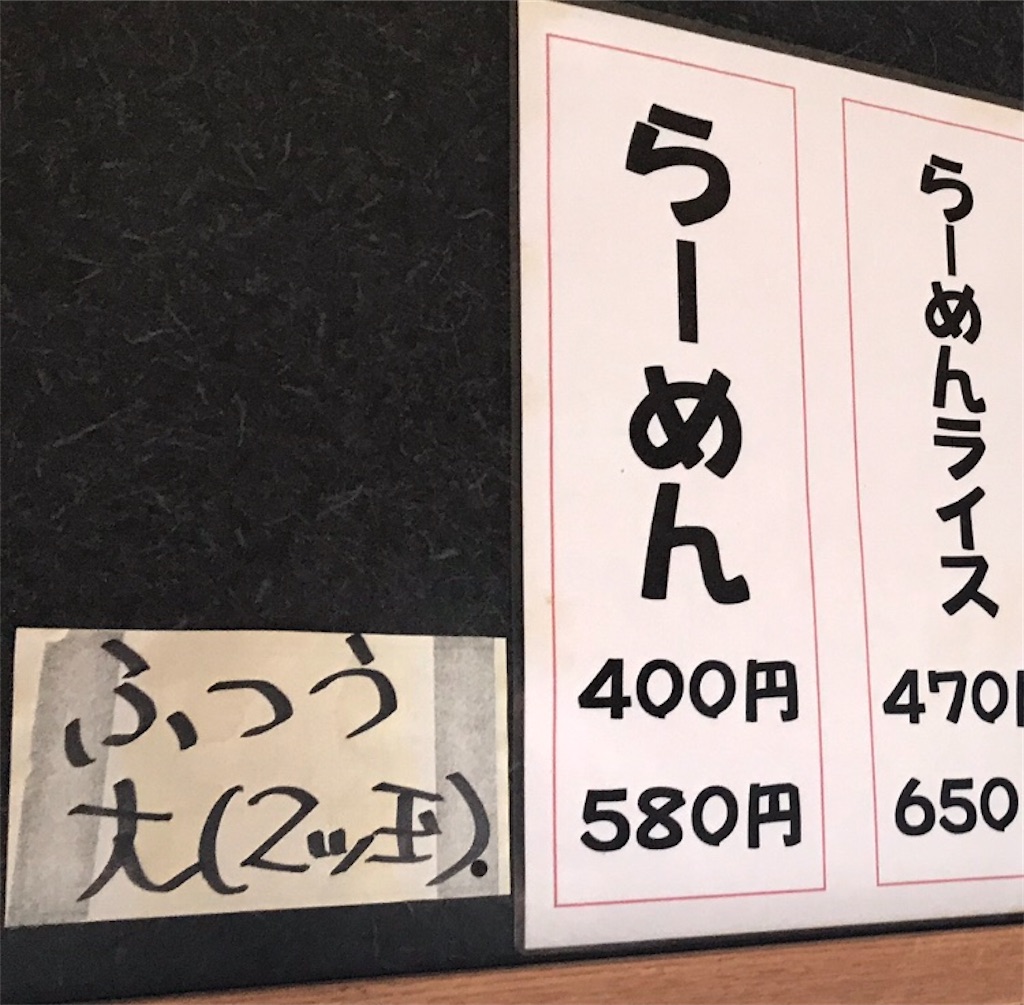 らーめん
400円
580円
らーめんライス
470
650
ふつう
大(2ッ玉).